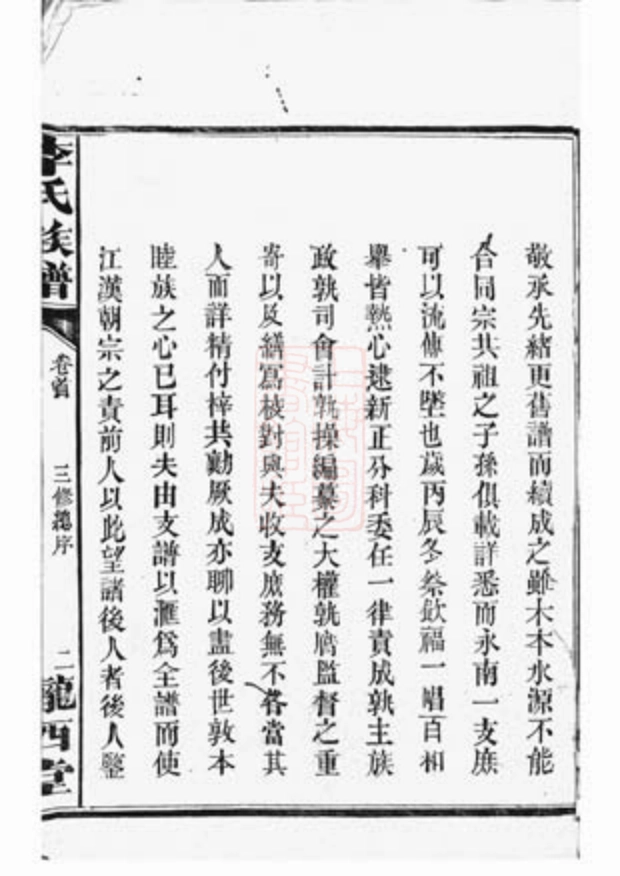 敬承先緒更舊譜而續成之雖木本水源不能
合同宗共祖之子孫俱載詳悉而永南一支庶
可以流傳不墜也歲丙辰冬祭飲福一唱百相
舉皆熱心逮新正分科委任一律責成孰主族
政孰司會計孰操編纂之大權孰膺監督之重
寄以及繕寫校對與夫收支庶務無不各當其
人而詳精付梓共勷厥成亦聊以盡後世敦本
睦族之心已耳則夫由支譜以滙爲全譜而使
江漢朝宗之責前人以此望諸後人者後人鑒
李氏族譜 卷首 三修總序 二 隴西堂